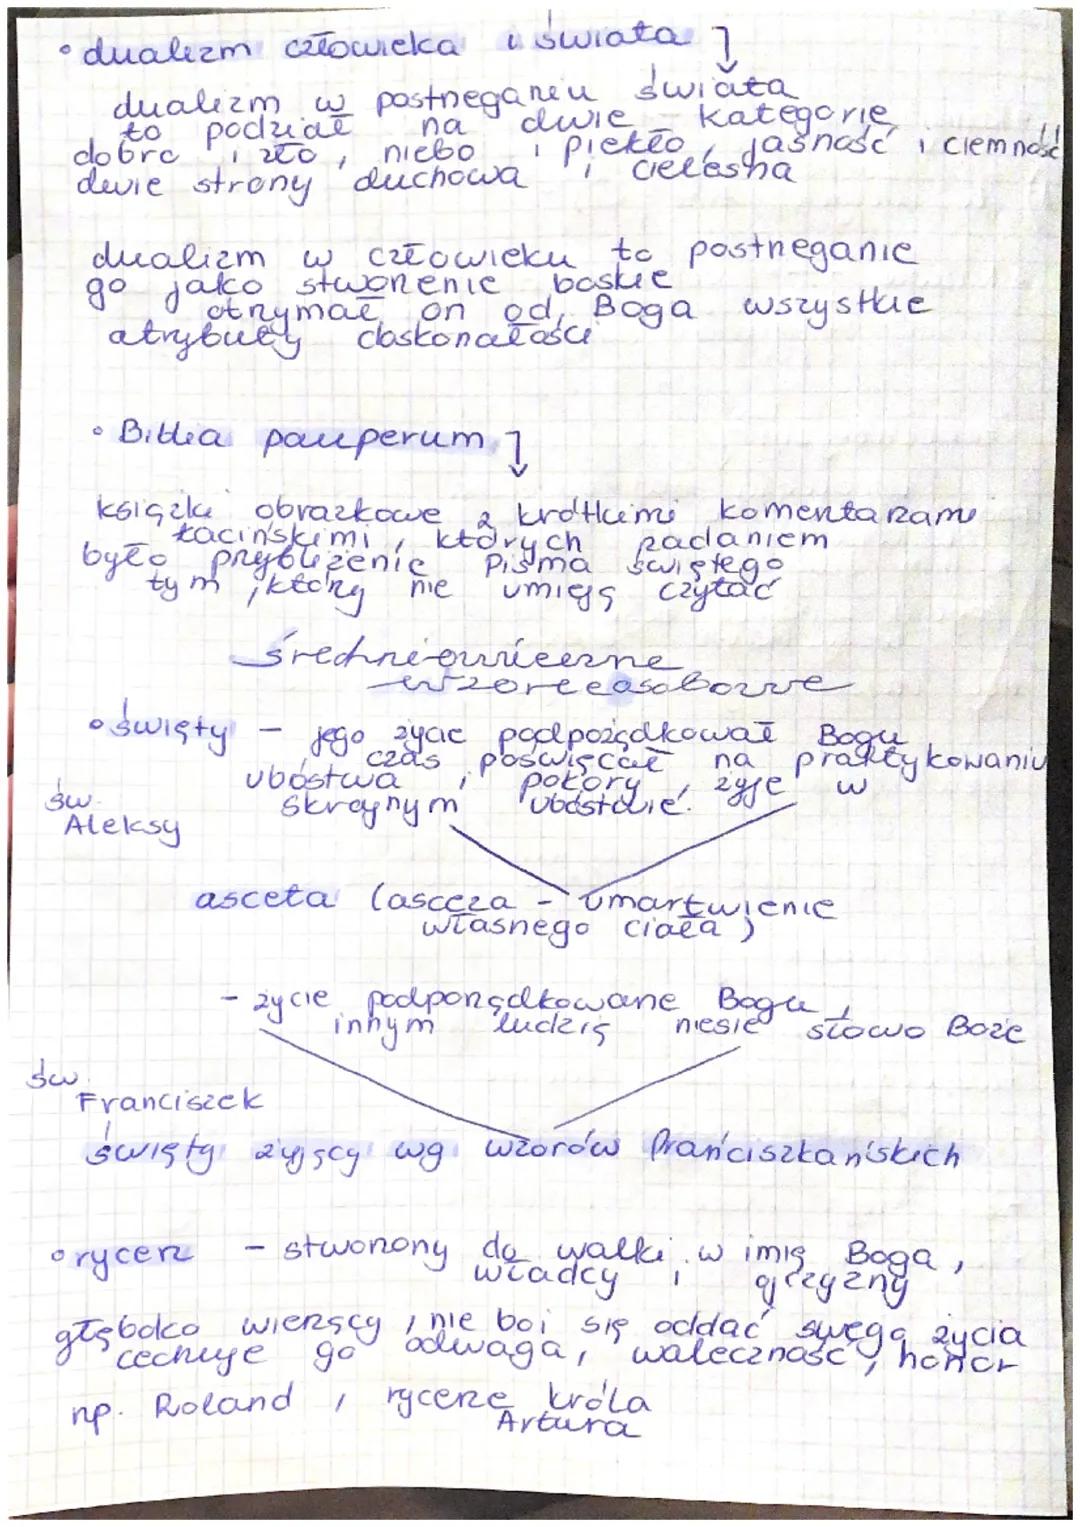 • dualizm człowieka i świata
dualizm w postrzeganiu świata
to podział na dwie kategorie
dobro i zło, niebo i piekło, jasność i ciemność
dwie strony duchowa i cielesna
dualizm w człowieku to postrzeganie
go jako stworzenie boskie
otrzymał on od Boga wszystkie
atrybuty doskonałości
• Biblia pauperum
książki obrazkowe z krótkimi komentarzami
łacińskimi, których zadaniem
było przybliżenie Pisma Świętego
tym, którzy nie umieją czytać
średniowieczne
wzorce osobowe
• święty - jego życie podporządkował Bogu
czas poświęcał na praktykowaniu
ubóstwa i pokory, żyje w
skrajnym ubóstwie.
św.
Aleksy
asceta (asceza - umartwienie
własnego ciała)
- życie podporządkowane Bogu,
innym ludzią niesie słowo Boże
św.
Franciszek
święty żyjący wg wzorów franciszkańskich
• rycerz - stworzony do walki w imię Boga,
władcy i ojczyzny
głęboko wierzący, nie boi się oddać swego życia
cechuje go odwaga, waleczność, honor
np. Roland, rycerze króla
Artura